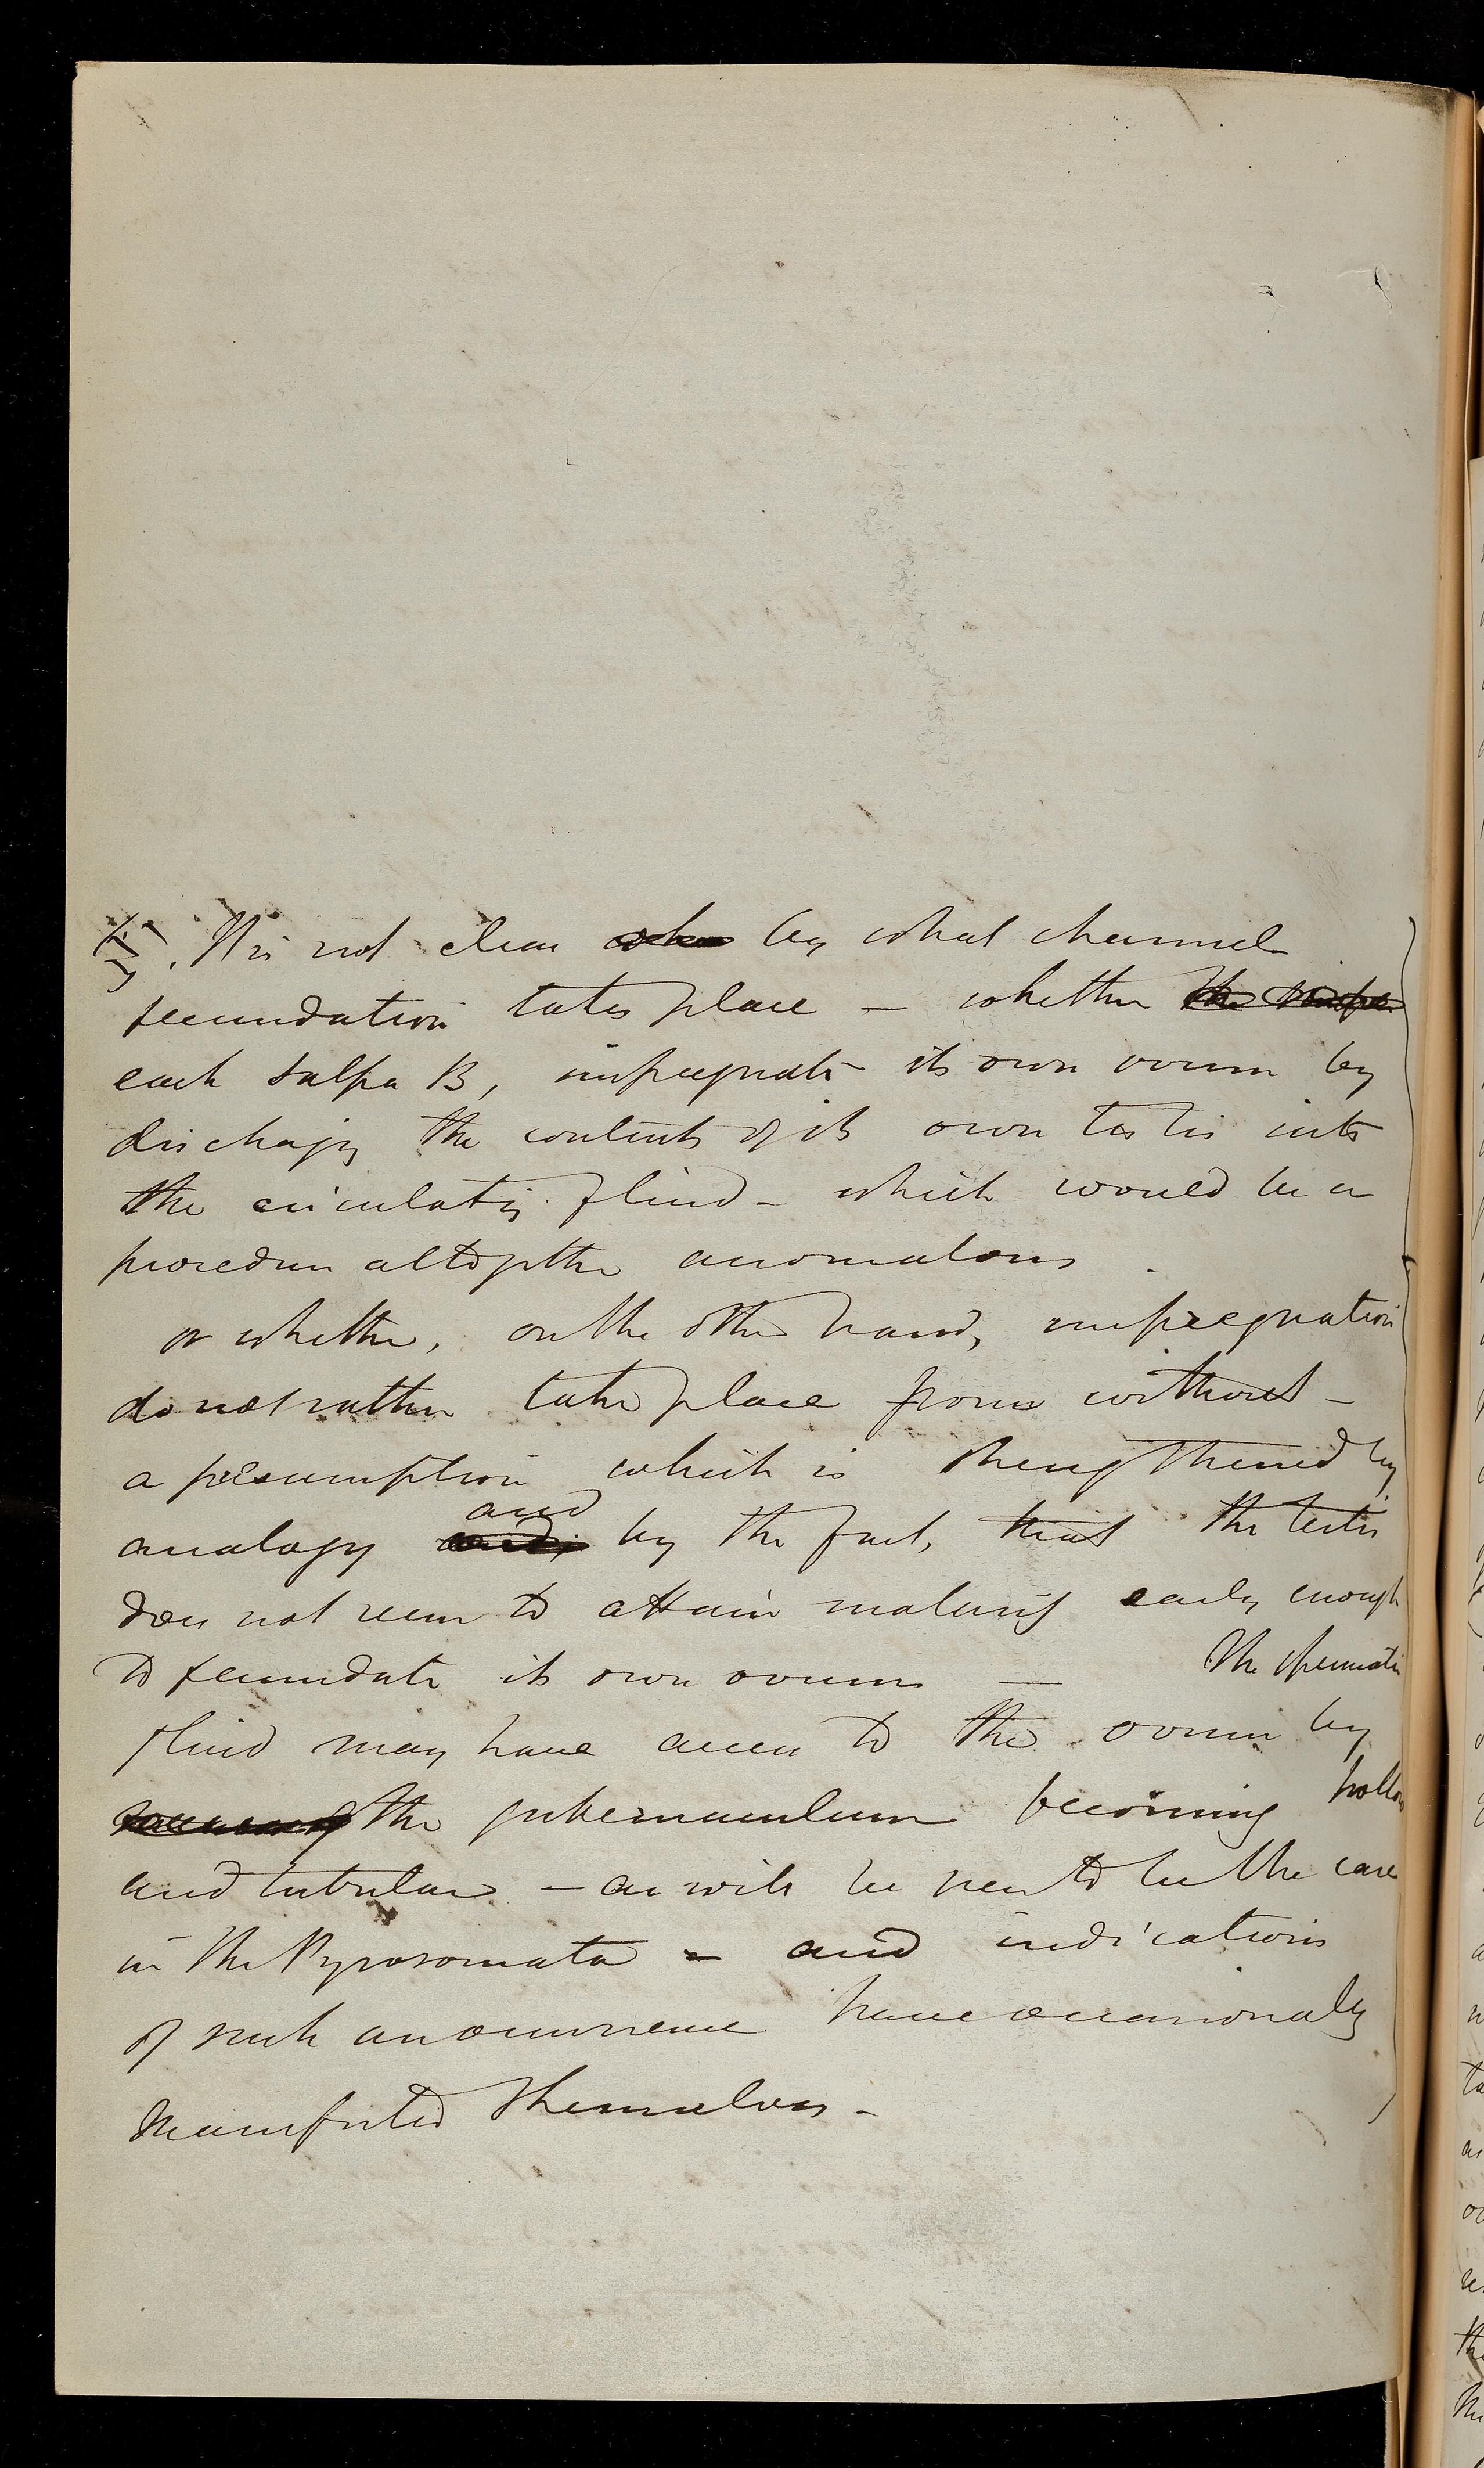 It is not clear by what channel
fecundation takes place — whether
each Salpa B, impregnate its own ovum by
discharging the contents of its own testis into
the circulating fluid — which would be a
procedure altogether anomalous
or whether, on the other hand, impregnation
do not rather take place from without —
a presumption which is strengthened by
analogy and by the fact, that the testis
does not seem to attain maturity early enough
to fecundate its own ovum — The spermatic
fluid may have access to the ovum by
the gubernaculum becoming hollow
and tubular — as will be seen to be the case
in the Pyrosomata — and indications
of such an occurrence have occasionally
manifested themselves —